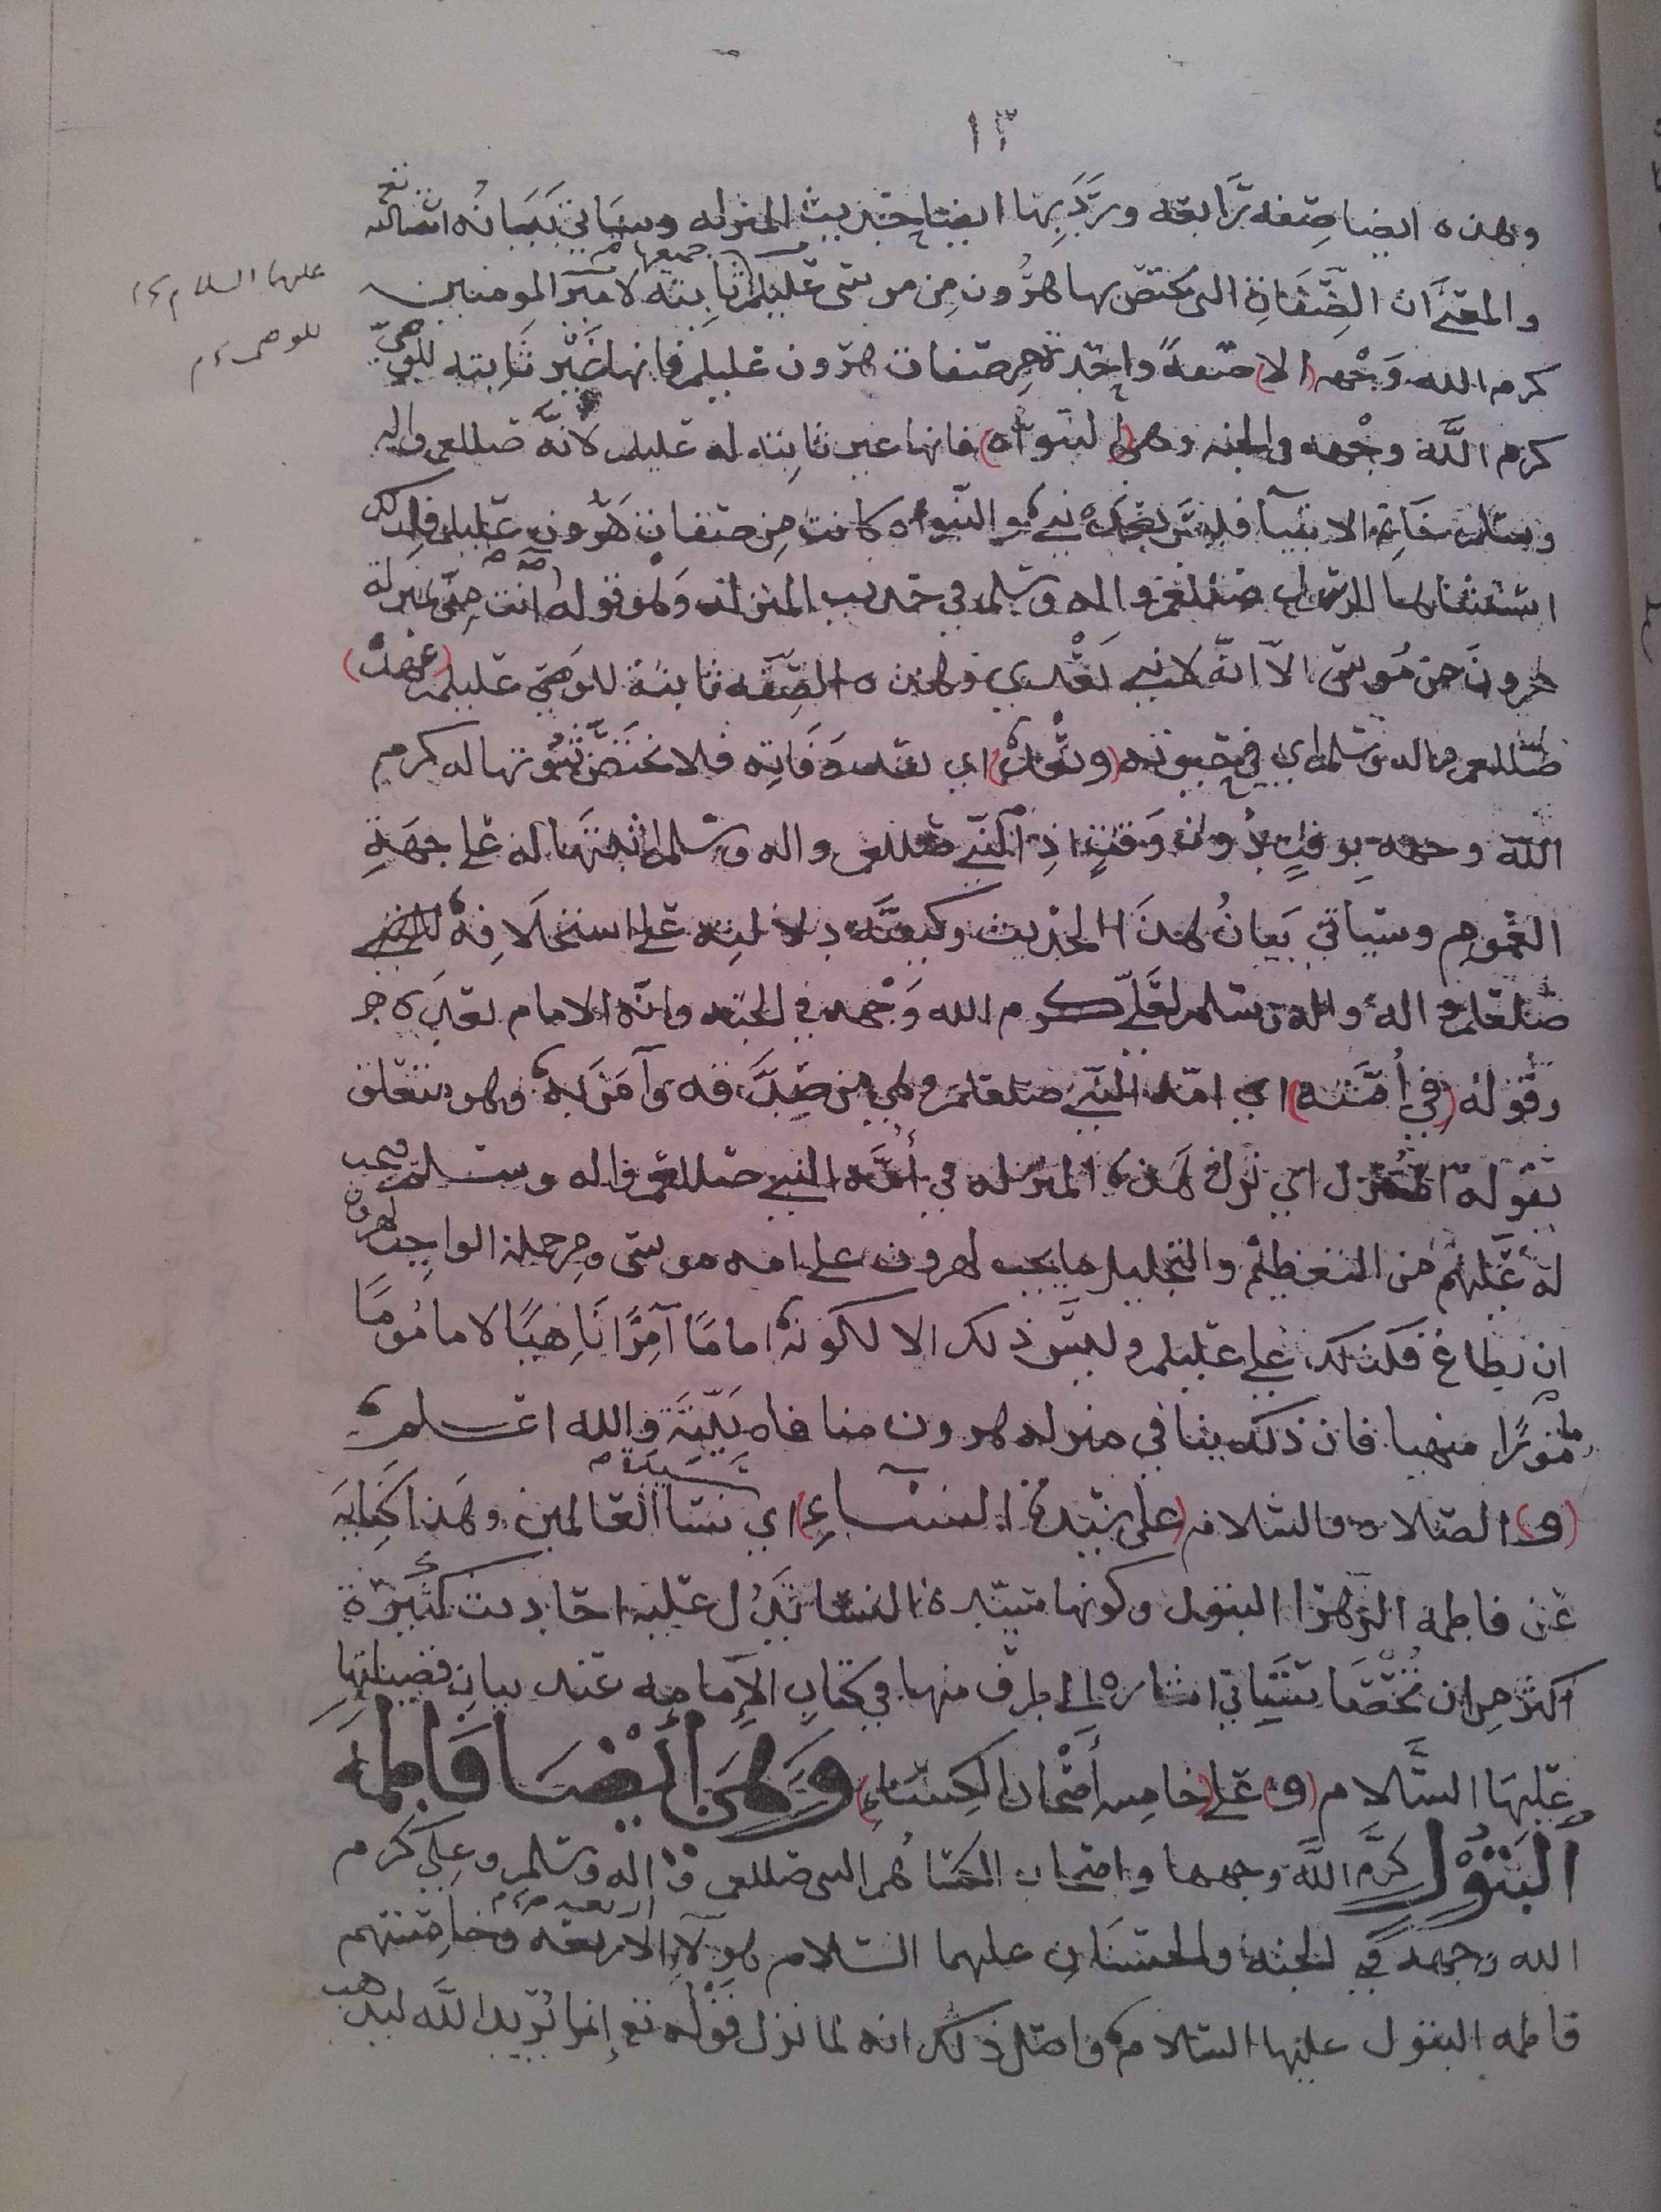 ١٣
وهذه ايضا صفه رابعه ورد بها ايضا حديث المنزله وسياتي بيانه انشا الله تع
والمعنى ان الصفات التي يختص بها هرون من موسى عليلم جميعها ثابته لامير المومنين
عليهما السلام
كرم الله وجهه (الا) صفة واحدة من صفات هرون عليلم فانها غير ثابته للوصي
للوصي
كرم الله وجهه في الجنه وهي (النبوة) فانها غير ثابته له عليلم لانه صللعم واله
وسلم خاتم الانبيآ فليس بعده نبي والنبوه كانت من صفات هرون عليلم فلذلك
استثناها الرسول صللعم واله وسلم في حديث المنزله وهو قوله انت مني بمنزلة
هرون من موسى الا انه لا نبي بعدي وهذه الصفه ثابتة للوصي عليلم (عهده)
صللعم واله وسلم اي في حيوته اي بعد وفاته فلا يختص ثبوتها له كرم
الله وجهه بوقت دون وقت اذ النبي صللعم واله وسلم اثبتها له على جهة
العموم وسياتي بيان هذا الحديث وكيفية دلالته على استخلافه النبي
صلعلم واله وسلم لعلي كرم الله وجهه في الجنه وانه الامام بعده
وقوله (في أمته) اي امة النبي صلعلم وهي من صدقه وآمن به وهو يتعلق
بقوله اي نزل هذه المنزله في أمة النبي صللعم واله وسلم فيجب
له عليهم من التعظيم والتجليل ما يجب لهرون على امه موسى ومن جملة الواجب لهرون
ان يطاع فكذلك علي عليلم وليس ذلك الا لكونه اماما آمرا ناهيا لا ماموما
مامورا منهيا فان ذلك ينافي منزله هرون منافاه بينة والله اعلم
(و) الصلاه والسلام (على سيدة النساء) اي سيدة نسا العالمين وهذا كناية
عن فاطمه الزهرا البتول وكونها سيدة النسا يدل عليه احاديث كثيرة
اكثر من ان تحصا سياتي اشاره الى طرف منها في كتاب الإمامه عند بيان فضيلتها
عليها السلام (و) على (خامس أصحاب الكساء) وهي أيضا فاطمة
البتول كرم الله وجهها واصحاب الكسا هم النبي صللعم واله وسلم وعلي كرم
الله وجهه في الجنه والحسنان عليهما السلام هولآء الاربعة اربعه وخامستهم
فاطمه البتول عليها السلام واصل ذلك انه لما نزل قوله تع إنما يريد الله ليذهب